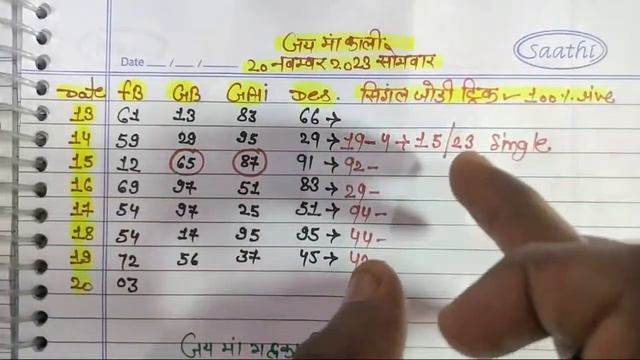 जय मां काली:
Date __/__/__ 20 नवम्बर 2023 सोमवार Saathi
Date FB GB GAi Des. सिंगल जोडी ट्रिक 100% लाइव
13 61 13 83 66 →
14 59 29 95 29 → 19-4 → 15/23 Single.
15 12 65 87 91 → 92-
16 69 97 51 83 → 29-
17 54 97 25 51 → 94-
18 54 17 95 95 → 44-
19 72 56 37 45 →
20 03
जय मां